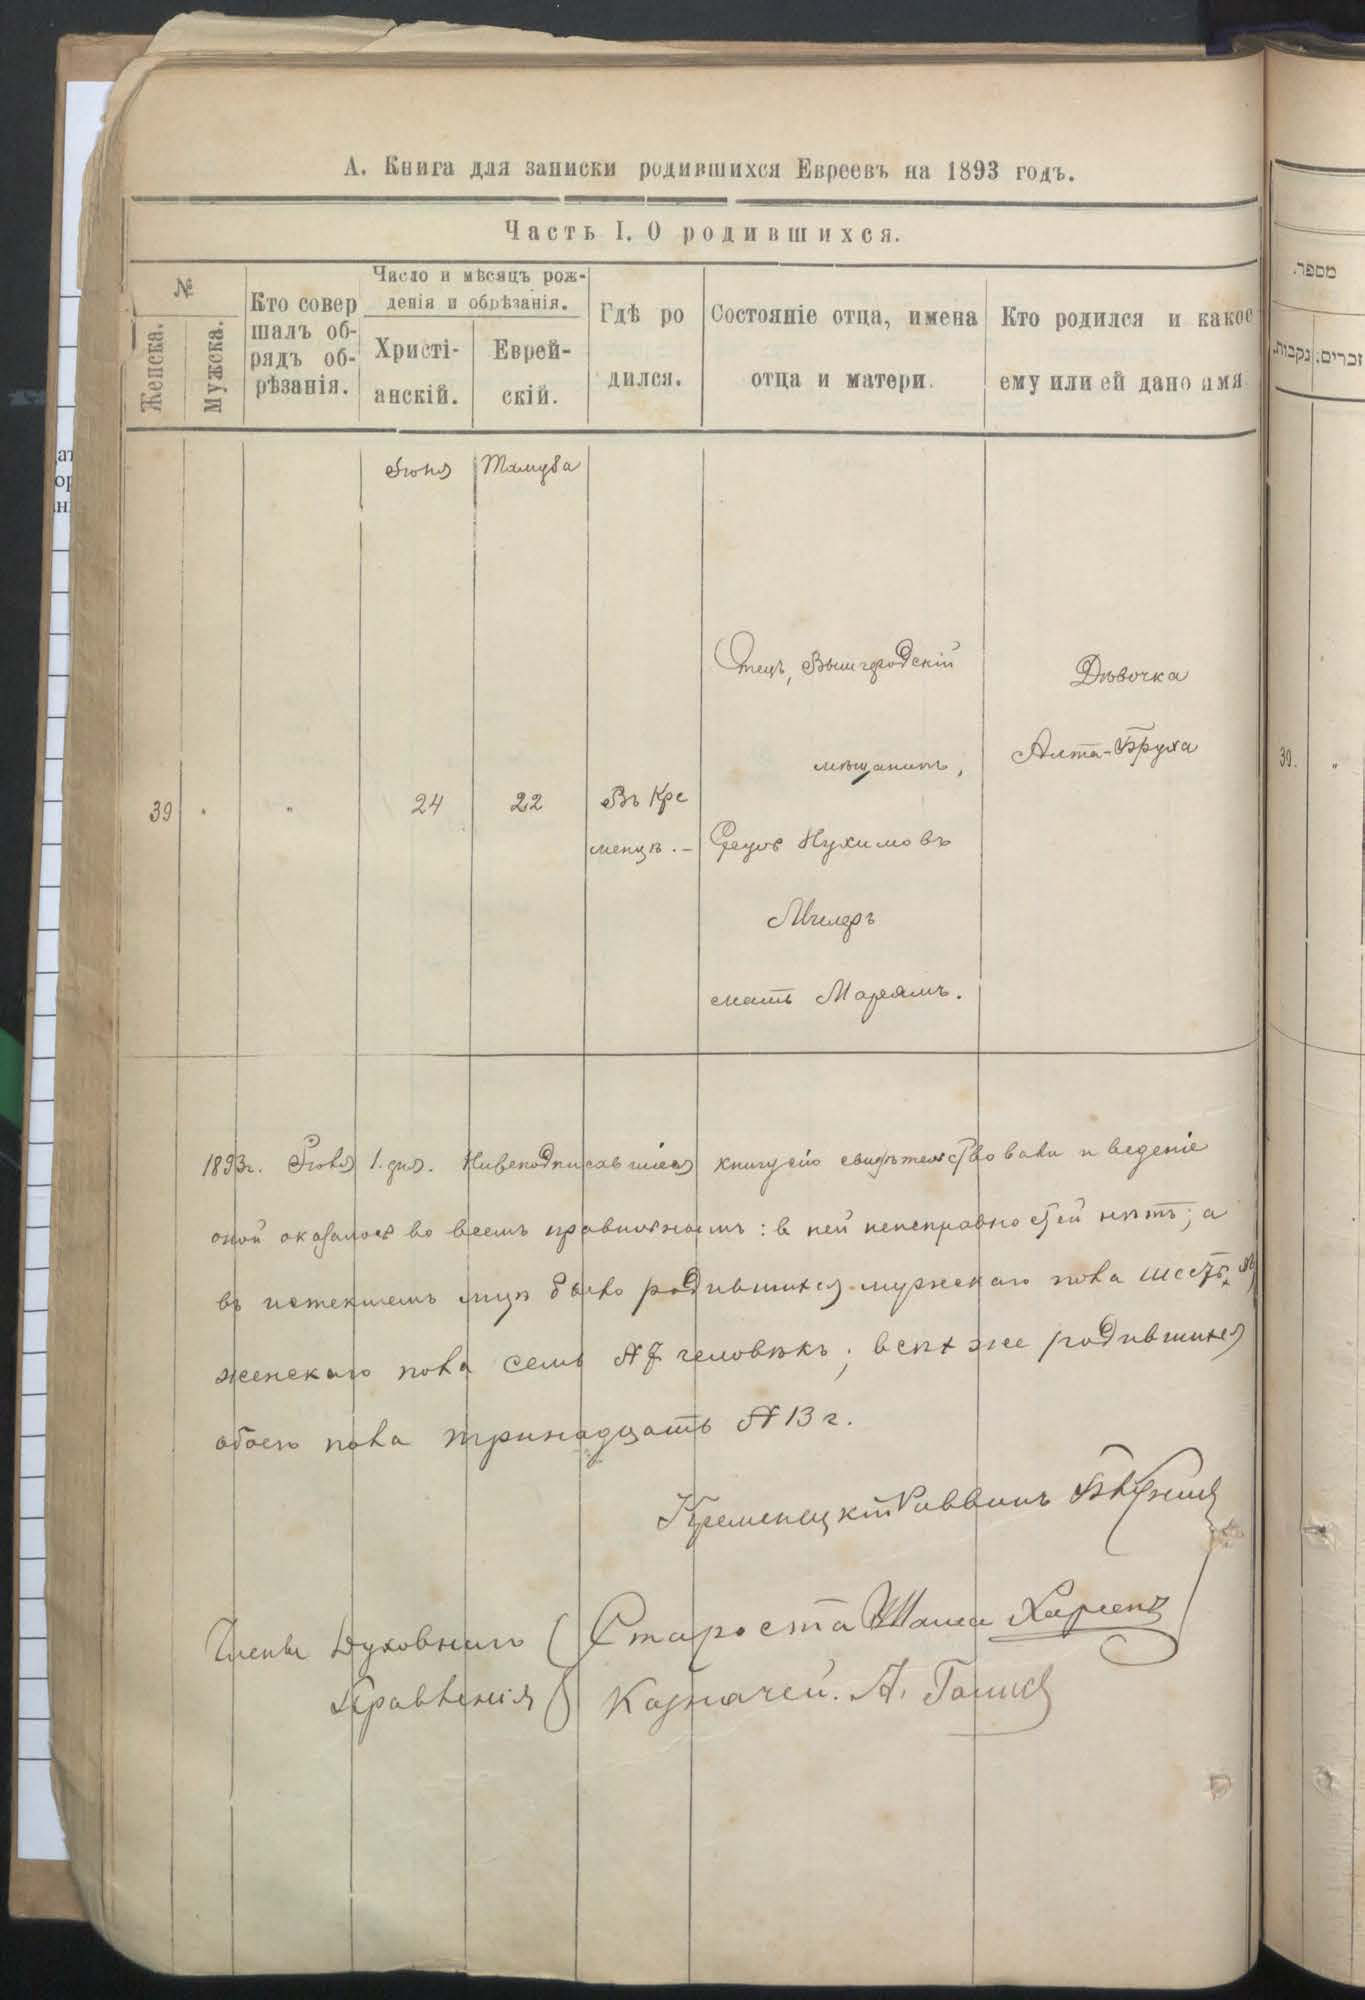 А. Книга для записки родившихся Евреевъ на 1893 годъ.
Часть I. О родившихся.
№
Женска.
Мужска.
Кто совер
шалъ об-
рядъ об-
рѣзанія.
Число и мѣсяцъ рож-
денія и обрѣзанія.
Христі-
анскій.
Еврей-
скій.
Гдѣ ро
дился.
Состояніе отца, имена
отца и матери.
Кто родился и какое
ему или ей дано имя
Тамуза
39
"
"
24
22
Въ Кре
менцѣ. –
Отецъ, Вышгородскій
мѣщанинъ,
Нухимовъ
Милеръ
мать Маріямъ.
Дѣвочка
Алта-Бруха
1893 г. 1. дня. Нижеподписавшіеся книгу сію свидѣтельствовали и веденіе
оной оказалось во всемъ правильнымъ: в ней неисправностей нѣтъ; а
въ истекшемъ мцѣ было родившихся мужскаго пола шесть
женскаго пола семь № 7 человѣкъ; всѣх же родившихся
обоего пола тринадцать № 13 г.
Кременецкій Раввинъ
Члены Духовнаго
Правленія
Староста
Казначей. А.
מספר.
נקבות.
זכרים.
39.
"